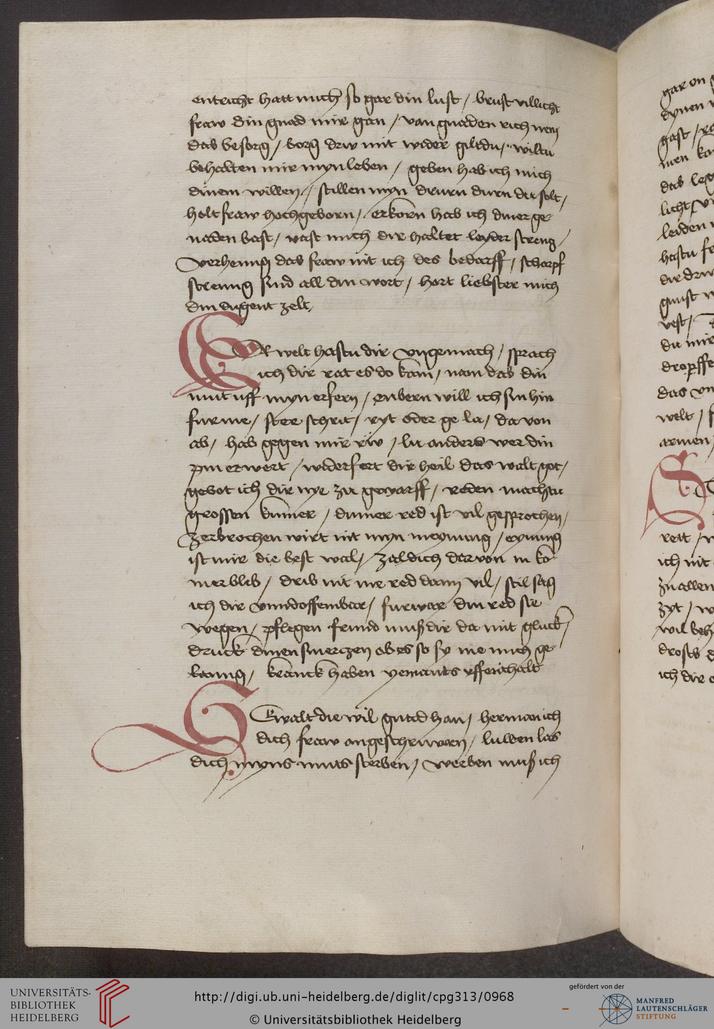 entricht hatt mich so gar din lust / brust villicht
fraw din gnad mir gan / van gnaden rich wen
das besorg / borg drw mit wider giltu / wiltu
behalten mir myn leben / geben hab ich mich
dinem willen / stillen myn druren durn du solt /
holt fraw hochgeborn / erkorn hab ich diner ge
naden bast / vast mich dir haltet leyder streng /
verheng das fraw nit ich des bedarff / scharpf
streng sind all din wort / hort liebster mich
din dugent zelt /
welt hastu dir ungemach / sprach
ich dir rat es do kam / nam das din
mut uff myn erfern / enbern will ich sin hin
fur me / stee schrit / ryt oder ge la / da von
ab / hab gegen mir rw / lit anders wer din
pin erwert / widerfert dir heil das walt got /
gebot ich dir nye zu gewarff / reden machstu
grossen kumer / dumer red ist vil gesprochen /
zerbrochen wirt nit myn meynung / eynung
ist mir die best wal / zal dich dar von in ko
mer blib / drib nit me red dann vil / stil sag
ich dir unnd offembar / furwar din red sie
wegen / pflegen frund muß dir da mit gluck /
druck dinen smerczen ab es so sy me mich ge
lanng / kranck haben yemants uffenthalt
Gwalt die wil gnad han / herman ich
dich fraw angeschruwen / luwen las
dich myns muts sterben / werben muß ich
gar on
dynen
gast /
men
das
licht
leiden
hastu
dir
gunst
vest /
du mir
dropffe
das
welt /
armen /
rett /
ich nit
zu allen
zyt /
wil
drost
ich dir
UNIVERSITÄTS-
BIBLIOTHEK
HEIDELBERG
http://digi.ub.uni-heidelberg.de/diglit/cpg313/0968
© Universitätsbibliothek Heidelberg
gefördert von der
MANFRED
LAUTENSCHLÄGER
STIFTUNG